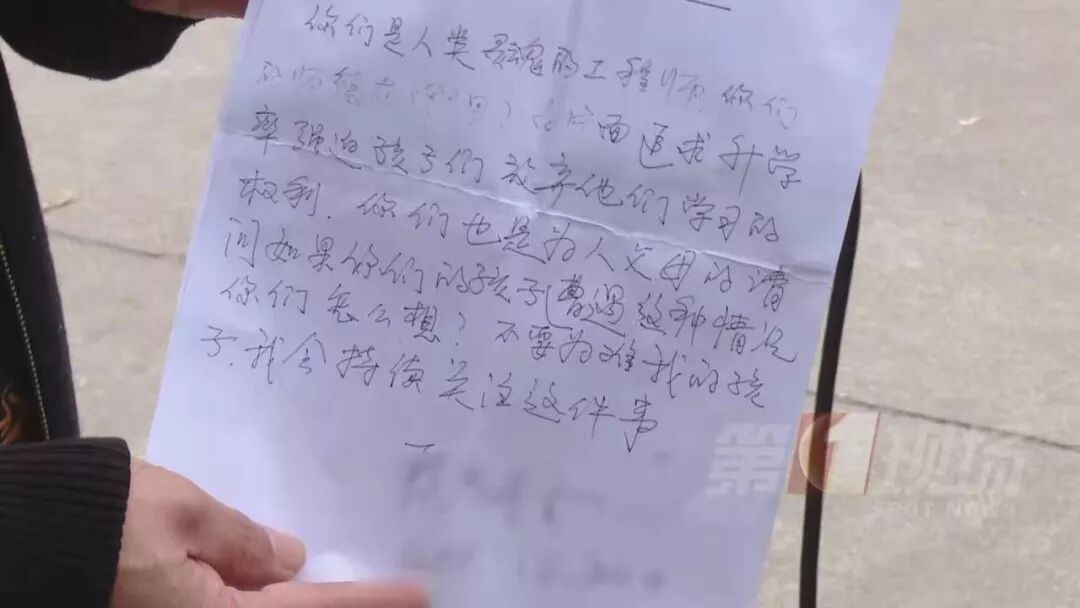 你们是人类灵魂的工程师.你们
的师德去(哪里)?片面追求升学
率强迫孩子们放弃他们学习的
权利.你们也是为人父母的请
问如果你们的孩子遭遇这种情况
你们怎么想?不要为难我的孩
子.我会持续关注这件事
第1现场
SPOT NEWS